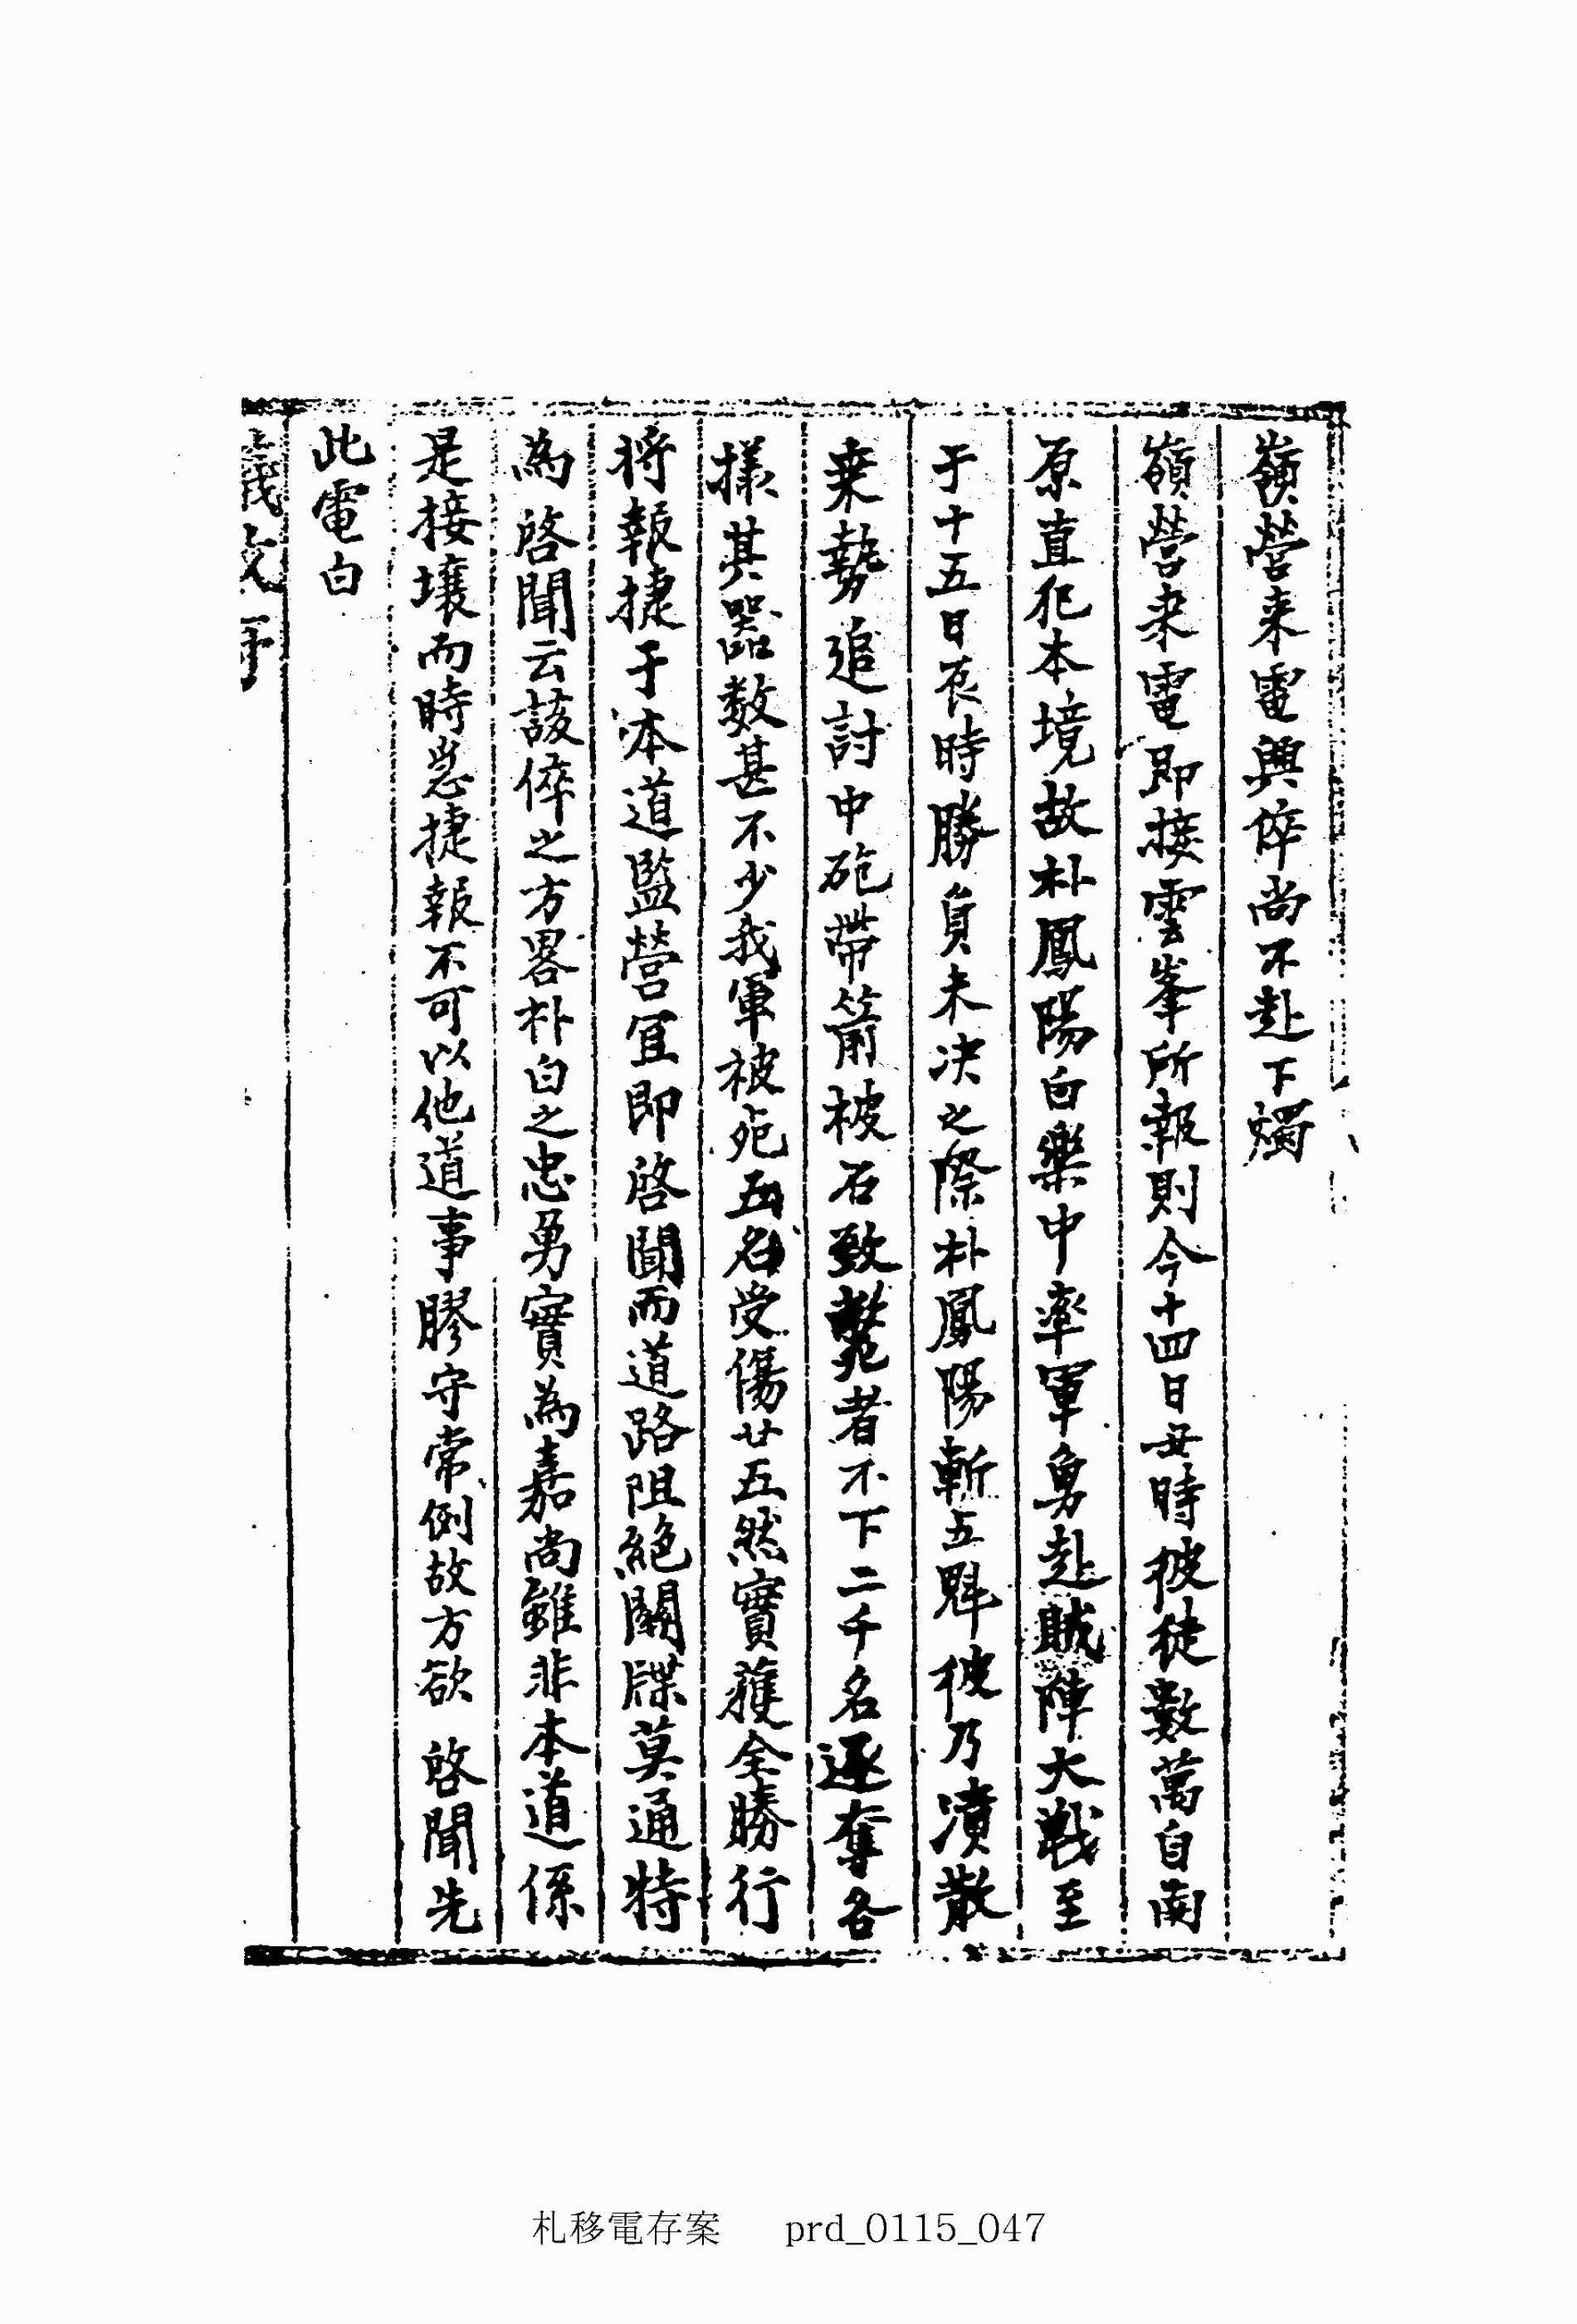 嶺營来電興倅尚不赴下燭
嶺營来電即接雲峯所報則今十四日丑時彼徒數萬自南
原直犯本境故朴鳳陽白樂中率軍勇赴賊陣大戦至
于十五日辰時勝負未决之際朴鳳陽斬五魁彼乃潰散
乗勢追討中砲帶箭被石致斃者不下二千名逐奪各
樣其器数甚不少我軍被死五名受傷廿五然實獲全勝行
将報捷于本道監營宜即啓聞而道路阻絶關牒莫通特
為啓聞云該倅之方畧朴白之忠勇實為嘉尚雖非本道係
是接壤而時急捷報不可以他道事膠守常例故方欲 啓聞先
此電白
議政府
札移電存案 prd_0115_047